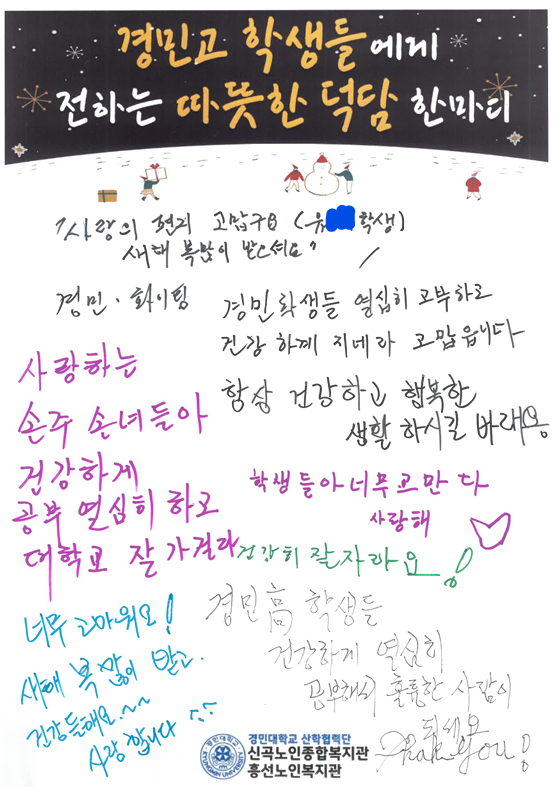 경민고 학생들에게
전하는 따뜻한 덕담 한마디
"사랑의 현지 고맙구요 (유 학생)
새태 복많이 받으세요"
경민·화이팅
경민학생들 열심히 고부하로
건강 하께 지네라 고맙읍니다
항상 건강하고 행복한
생활 하시길 바래용
사랑하는
손주 손녀들아
건강하게
공부 열심히 하고
대학교 잘가걸라
학생들아 너무 고만다
사랑해
건강히 잘자라요!
너무 고마워요!
새해 복 많이 받고.
건강들해요.~~
사랑합니다
경민高 학생들
건강하게 열심히
공부해서 훌륭한 사람이
되세요
Thank you!
경민대학교 산학협력단
신곡노인종합복지관
흥선노인복지관
KYUNGMIN UNIVERSITY